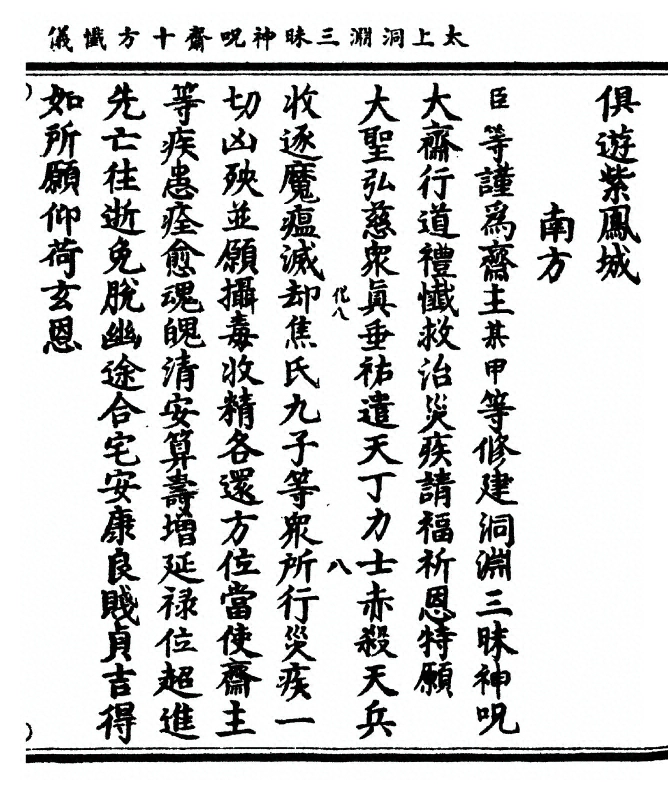 太上洞淵三昧神呪齋十方懺儀
俱遊紫鳳城
南方
臣等謹爲齋主某甲等修建洞淵三昧神呪
大齋行道禮懺救治災疾請福祈恩特願
大聖弘慈衆眞垂祐遣天丁力士赤殺天兵
化八
八
收逐魔瘟滅却焦氏九子等衆所行災疾一
切凶殃並願攝毒收精各還方位當使齋主
等疾患痊愈魂魄清安算壽增延禄位超進
先亡往逝免脫幽途合宅安康良賤貞吉得
如所願仰荷玄恩